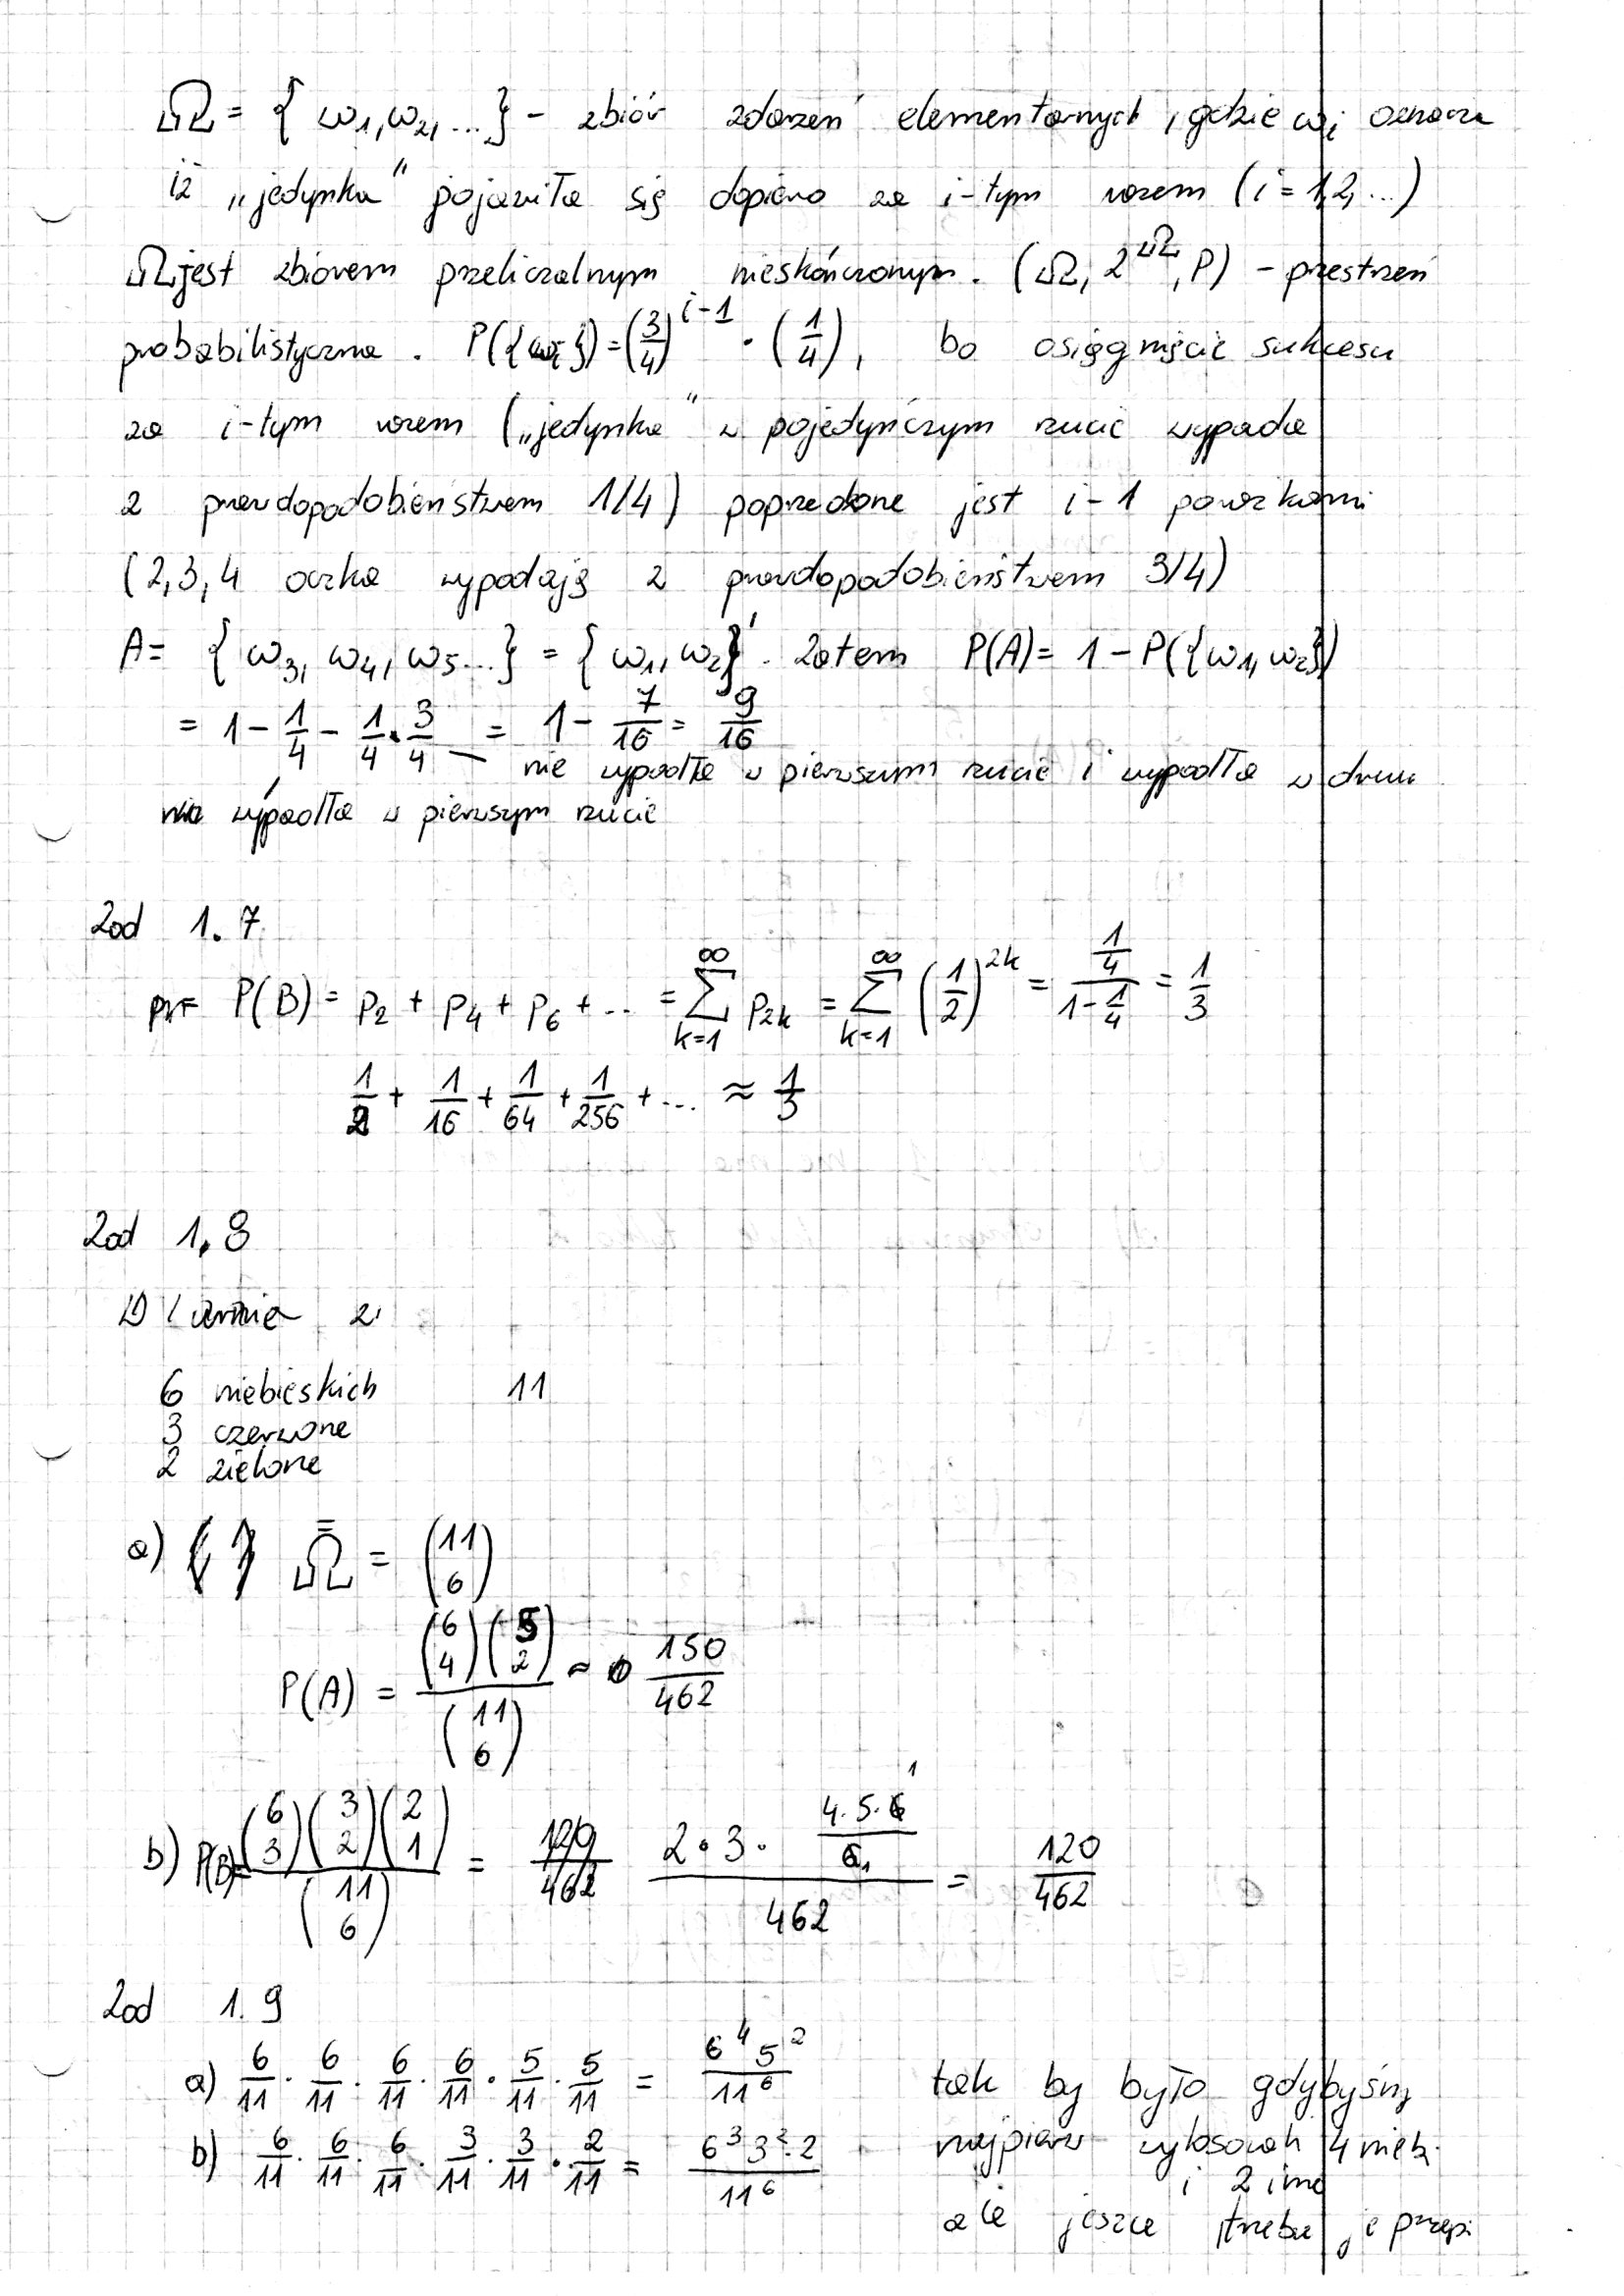 Ω = { ω₁, ω₂, ... } - zbiór zdarzeń elementarnych, gdzie ωᵢ oznacza
iż „jedynka” pojawiła się dopiero za i-tym razem (i = 1, 2, ...)
Ω jest zbiorem przeliczalnym nieskończonym. (Ω, 2^Ω, P) - przestrzeń
probabilistyczna. P({ωᵢ}) = (3/4)^(i-1) · (1/4), bo osiągnięcie sukcesu
za i-tym razem („jedynka” w pojedyńczym rzucie wypada
z prawdopodobieństwem 1/4) poprzedzone jest i-1 porażkami
(2, 3, 4 oczka wypadają z prawdopodobieństwem 3/4)
A = { ω₃, ω₄, ω₅ ... } = { ω₁, ω₂ }'. Zatem P(A) = 1 - P({ω₁, ω₂})
= 1 - 1/4 - 1/4 · 3/4 = 1 - 7/16 = 9/16
nie wypadła w pierwszym rzucie i wypadła w
wypadła w pierwszym rzucie
Zad 1.7
P(B) = p₂ + p₄ + p₆ + ... = ∑_{k=1}^{∞} p_{2k} = ∑_{k=1}^{∞} (1/2)^{2k} = (1/4)/(1 - 1/4) = 1/3
1/2 + 1/16 + 1/64 + 1/256 + ... ≈ 1/3
Zad 1.8
urnie 2
6 niebieskich 11
3 czerwone
2 zielone
a) Ω̿ = (11 6)
P(A) = (6 4)(5 2) / (11 6) ~ 150/462
b) P(B) = (6 3)(3 2)(2 1) / (11 6) = 120/462 (2 · 3 · (4·5·6)/6) / 462 = 120/462
Zad 1.9
a) 6/11 · 6/11 · 6/11 · 6/11 · 5/11 · 5/11 = 6⁴ 5² / 11⁶ tak by było gdybyśmy
b) 6/11 · 6/11 · 6/11 · 3/11 · 3/11 · 2/11 = 6³ 3² · 2 / 11⁶ najpierw wylosowali 4 nieb.
i 2 inne
ale jeszcze trzeba je przep